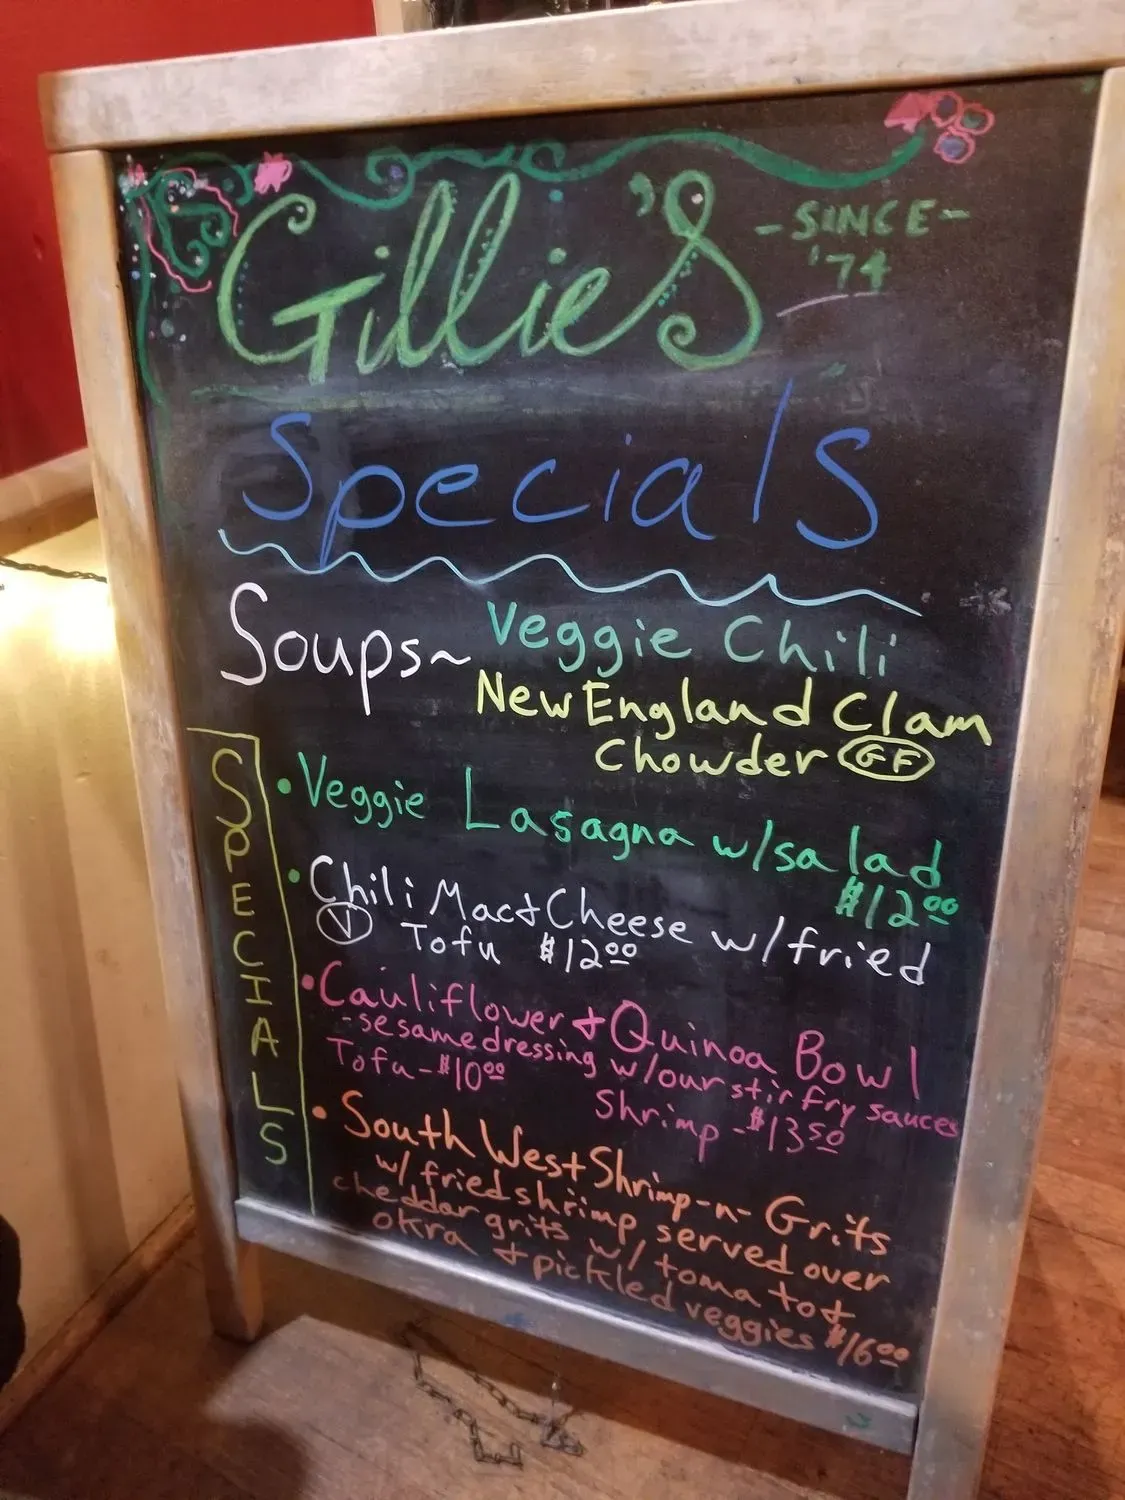 Gillie's
-SINCE-
'74
Specials
Soups~ Veggie Chili
New England Clam
Chowder GF
SPECIALS
• Veggie Lasagna w/salad
$12.00
• Chili Mac & Cheese w/fried
V Tofu $12.00
• Cauliflower & Quinoa Bowl
-sesame dressing w/our stir fry sauces
Tofu-$10.00
Shrimp-$13.50
• South West Shrimp-n-Grits
w/fried shrimp served over
cheddar grits w/ tomato &
okra & pickled veggies $16.00